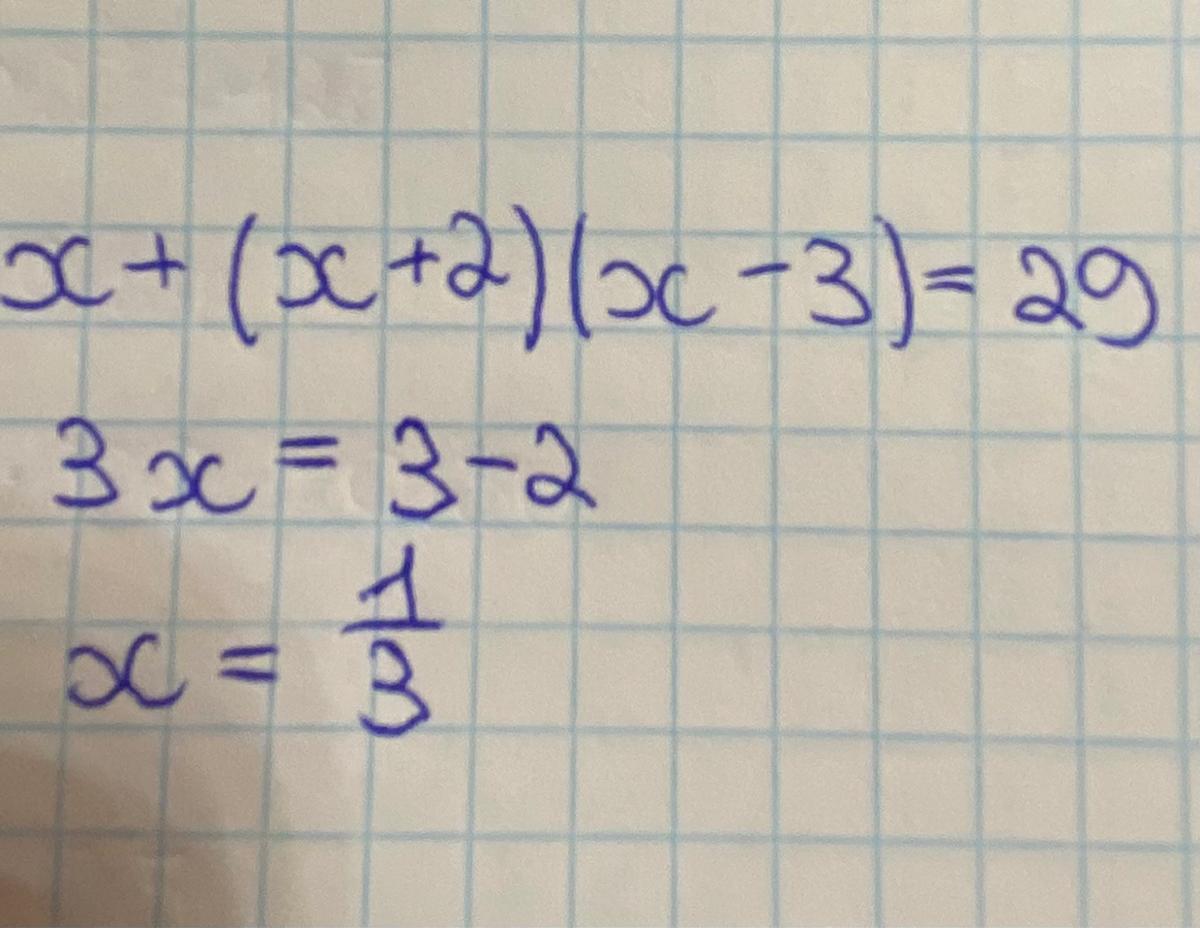 x + (x + 2)(x - 3) = 29
3x = 3 - 2
x = 1/3